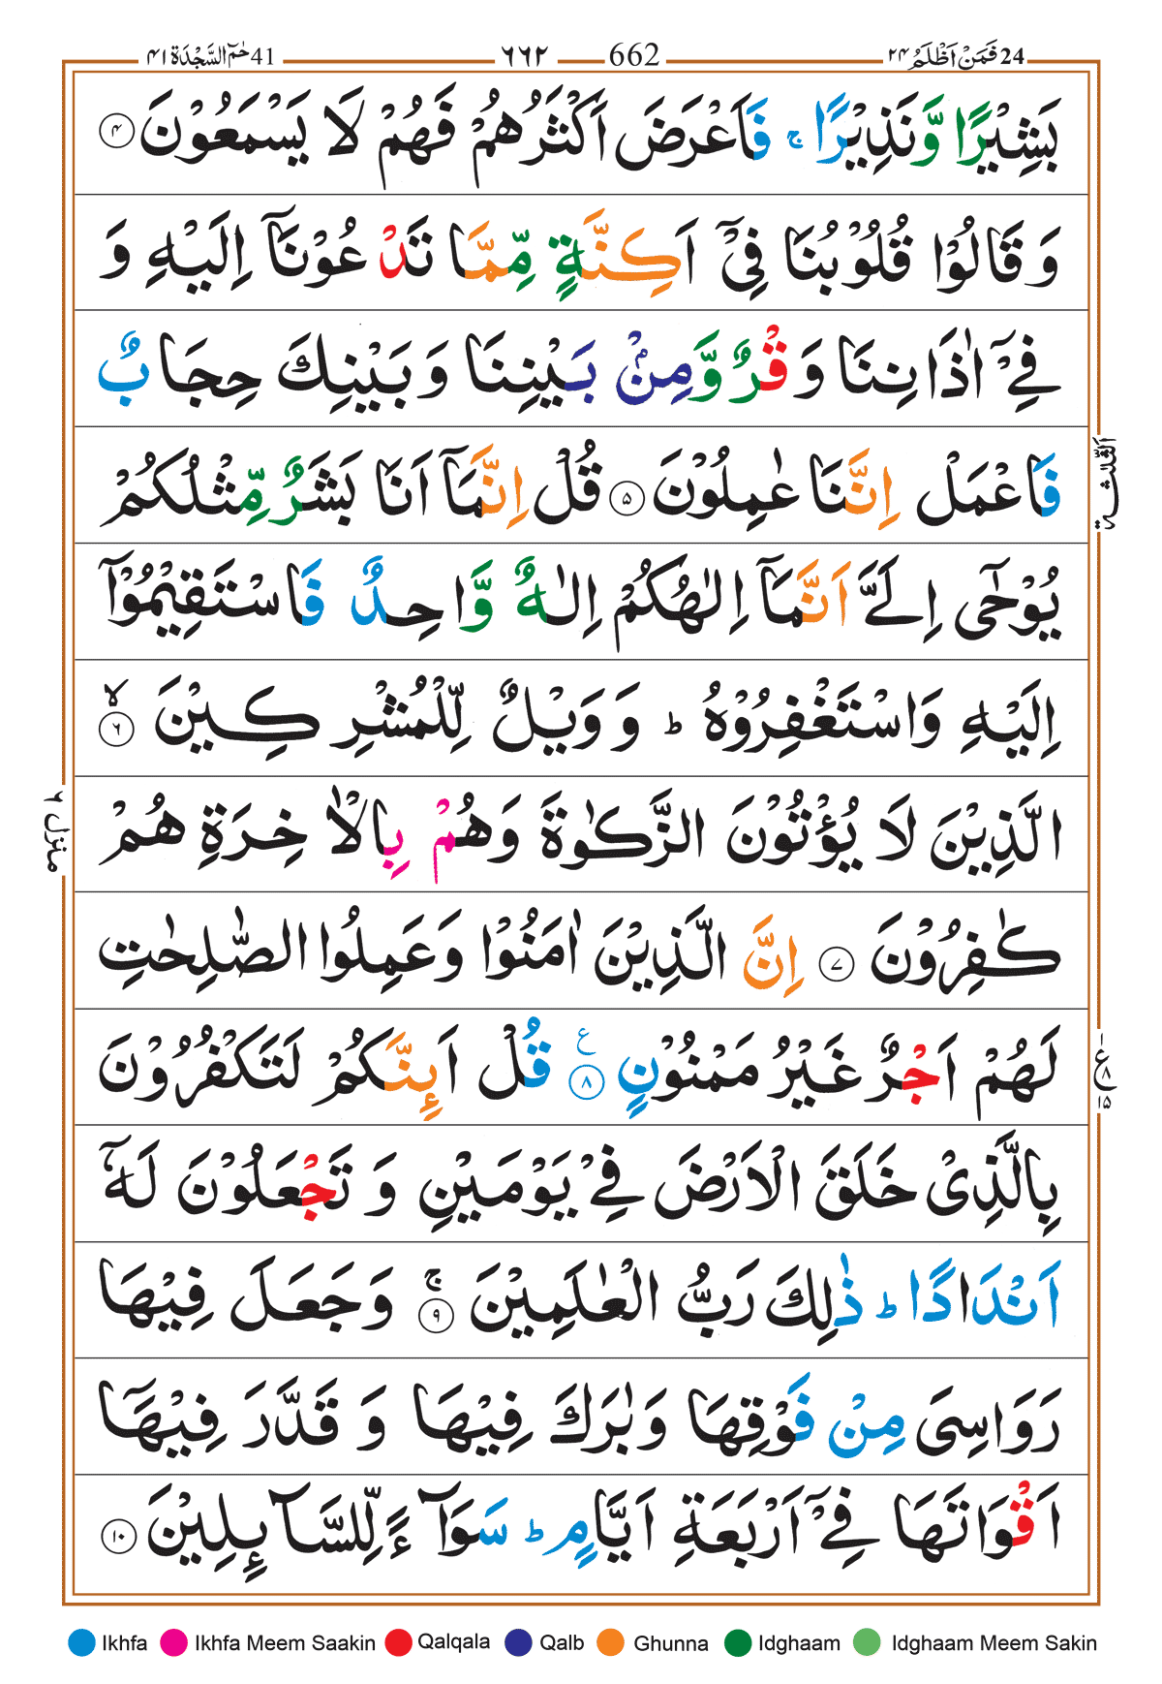 24 فَمَنْ اَظْلَمُ ٢٤ 662 ٦٦٢ 41 حٰمٓ السَّجْدَة ٤١
بَشِيْرًا وَّنَذِيْرًا ۚ فَاَعْرَضَ اَكْثَرُهُمْ فَهُمْ لَا يَسْمَعُوْنَ ٤
وَ قَالُوْا قُلُوْبُنَا فِيْۤ اَكِنَّةٍ مِّمَّا تَدْعُوْنَاۤ اِلَيْهِ وَ
فِيْۤ اٰذَانِنَا وَقْرٌ وَّمِنْۢ بَيْنِنَا وَبَيْنِكَ حِجَابٌ
فَاعْمَلْ اِنَّنَا عٰمِلُوْنَ ٥ قُلْ اِنَّمَاۤ اَنَا بَشَرٌ مِّثْلُكُمْ
الثلثة
يُوْحٰۤى اِلَيَّ اَنَّمَاۤ اِلٰهُكُمْ اِلٰهٌ وَّاحِدٌ فَاسْتَقِيْمُوْۤا
اِلَيْهِ وَاسْتَغْفِرُوْهُ ؕ وَ وَيْلٌ لِّلْمُشْرِكِيْنَ ۙ ٦
منزل ٦
الَّذِيْنَ لَا يُؤْتُوْنَ الزَّكٰوةَ وَهُمْ بِالْاٰخِرَةِ هُمْ
كٰفِرُوْنَ ٧ اِنَّ الَّذِيْنَ اٰمَنُوْا وَعَمِلُوا الصّٰلِحٰتِ
لَهُمْ اَجْرٌ غَيْرُ مَمْنُوْنٍ ع ٨ قُلْ اَىِٕنَّكُمْ لَتَكْفُرُوْنَ
١ ع ٨ ١٥
بِالَّذِيْ خَلَقَ الْاَرْضَ فِيْ يَوْمَيْنِ وَ تَجْعَلُوْنَ لَهٗۤ
اَنْدَادًا ؕ ذٰلِكَ رَبُّ الْعٰلَمِيْنَ ۚ ٩ وَجَعَلَ فِيْهَا
رَوَاسِيَ مِنْ فَوْقِهَا وَبٰرَكَ فِيْهَا وَ قَدَّرَ فِيْهَاۤ
اَقْوَاتَهَا فِيْۤ اَرْبَعَةِ اَيَّامٍ ؕ سَوَآءً لِّلسَّآىِٕلِيْنَ ١٠
Ikhfa Ikhfa Meem Saakin Qalqala Qalb Ghunna Idghaam Idghaam Meem Sakin